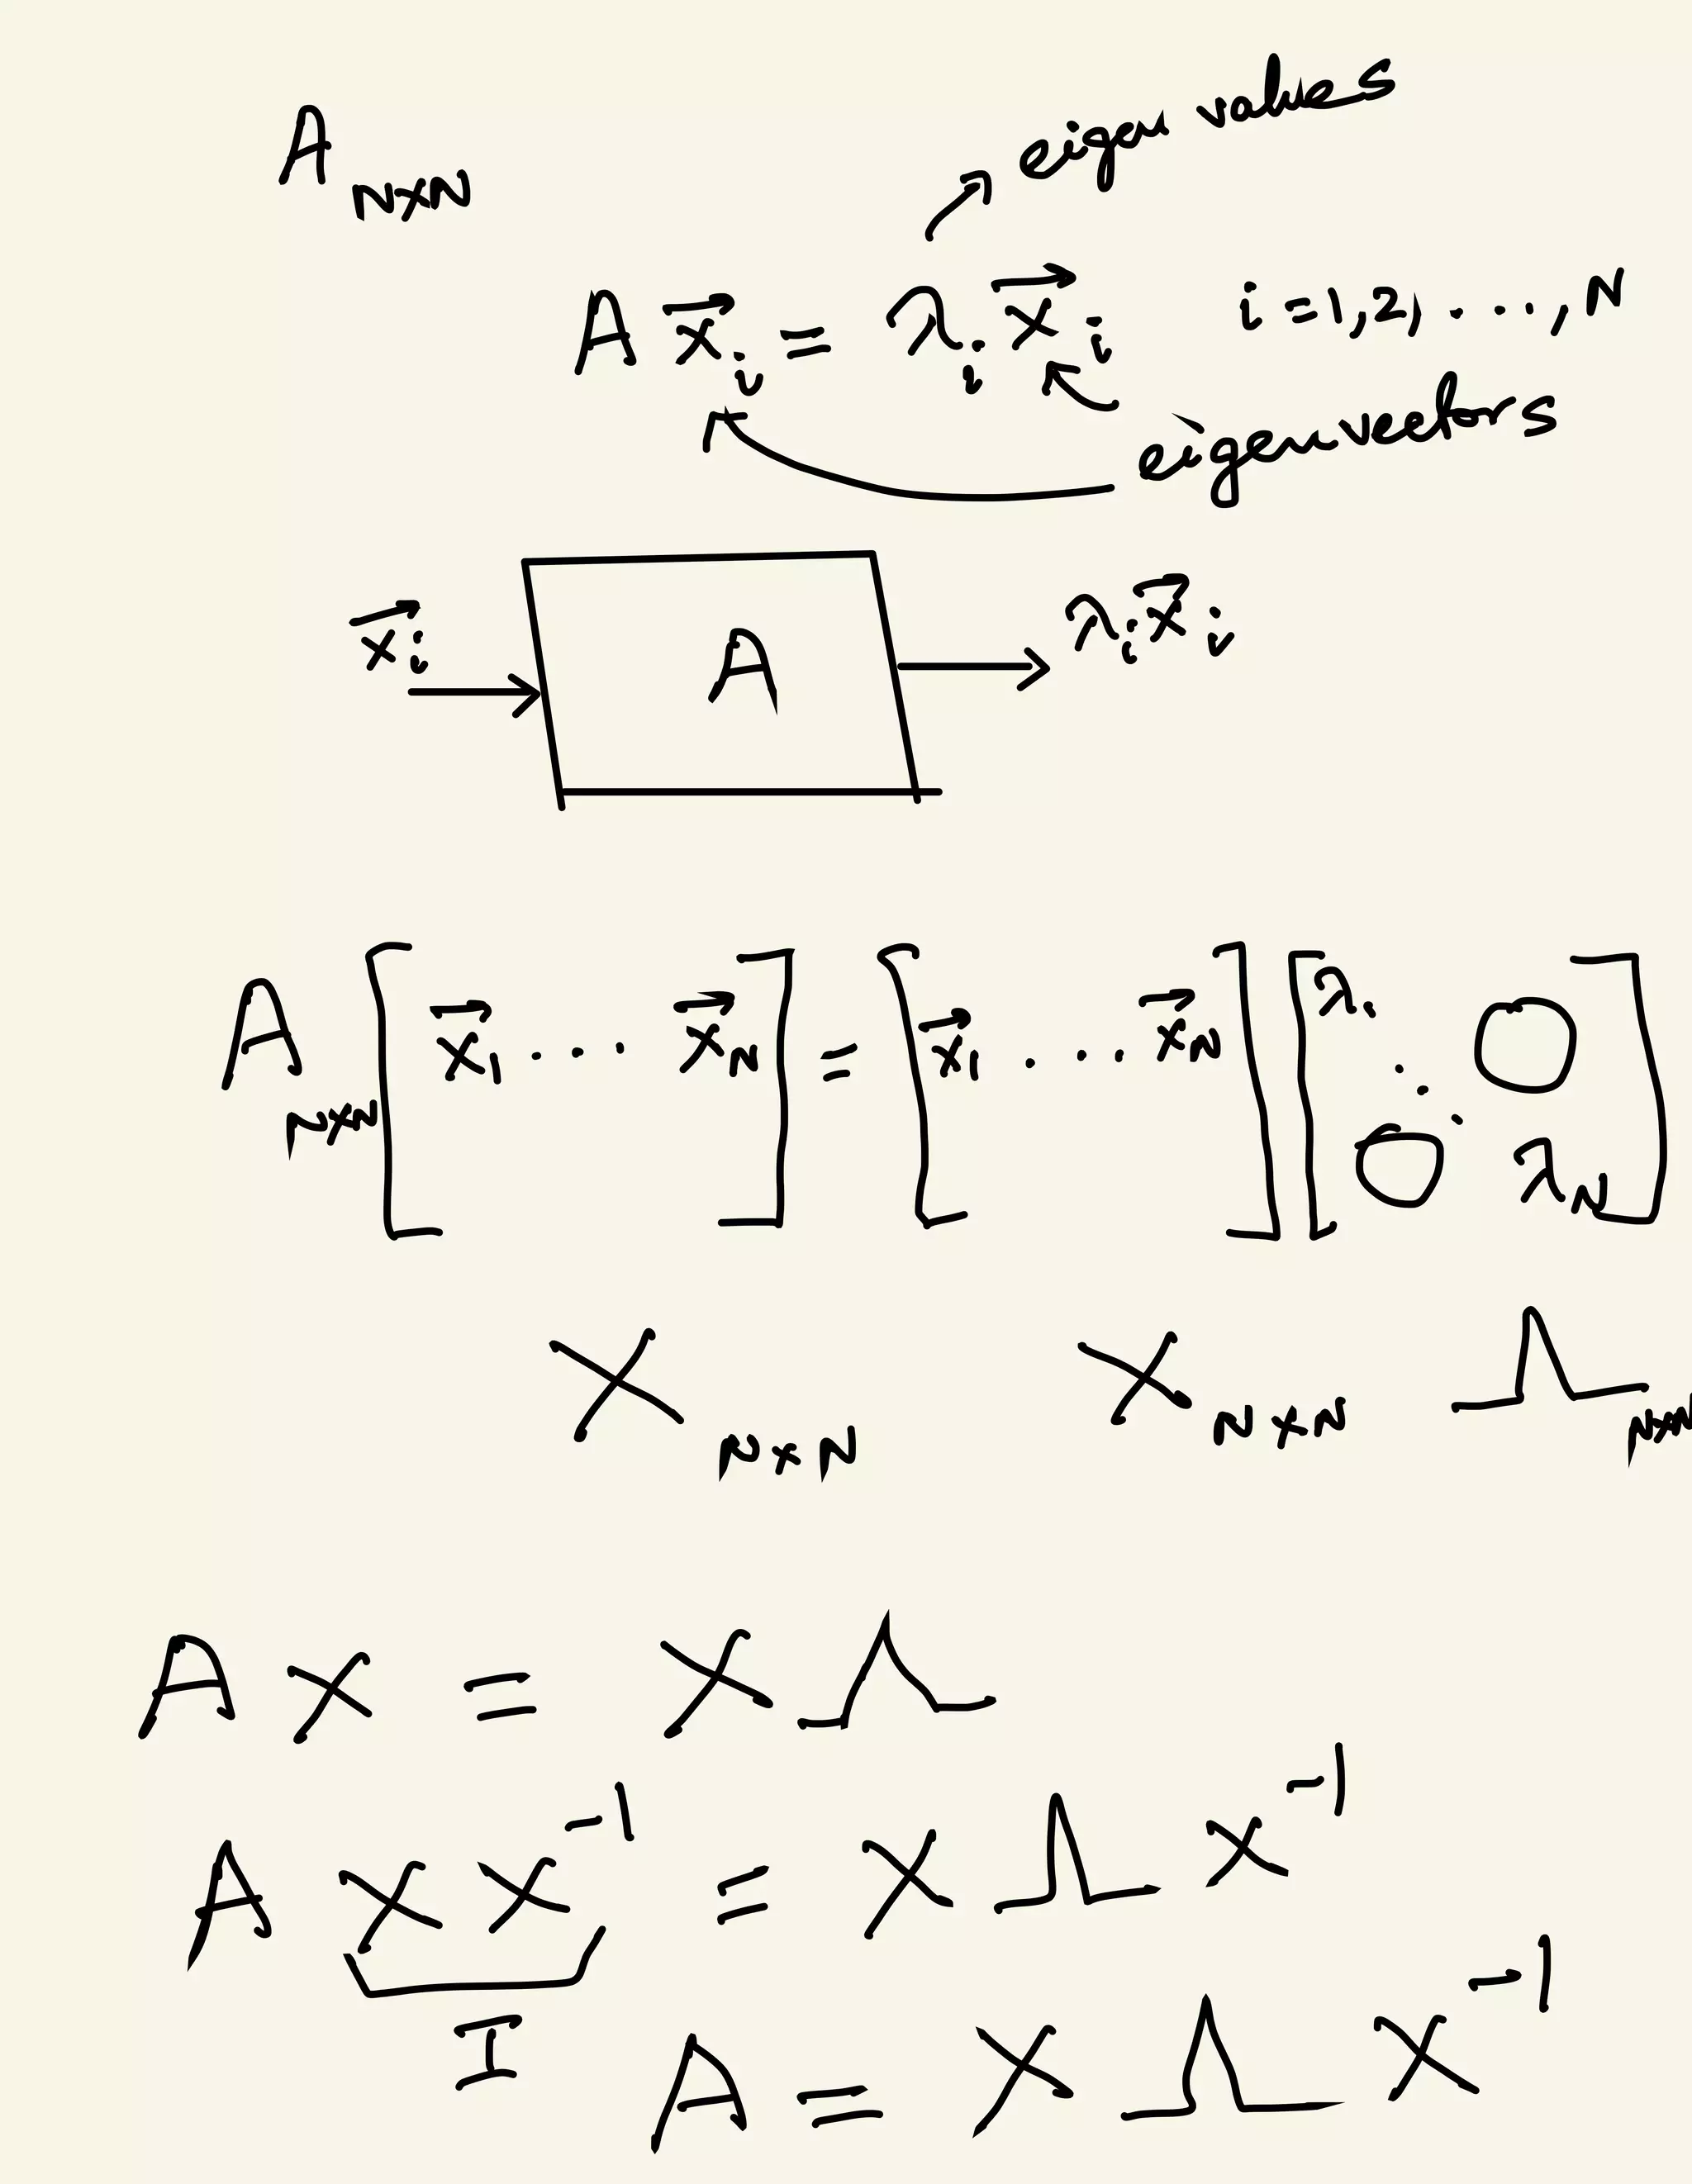 A N×N
eigen values
A x⃗ᵢ = λᵢ x⃗ᵢ i = 1, 2, ..., N
eigenvectors
x⃗ᵢ A λᵢ x⃗ᵢ
A N×N [x⃗₁ ... x⃗N] = [x⃗₁ ... x⃗N] [λ₁ ⋱ 0 0 λN]
X N×N X N×N Λ N×N
A X = X Λ
A X X⁻¹ = X Λ X⁻¹
I
A = X Λ X⁻¹